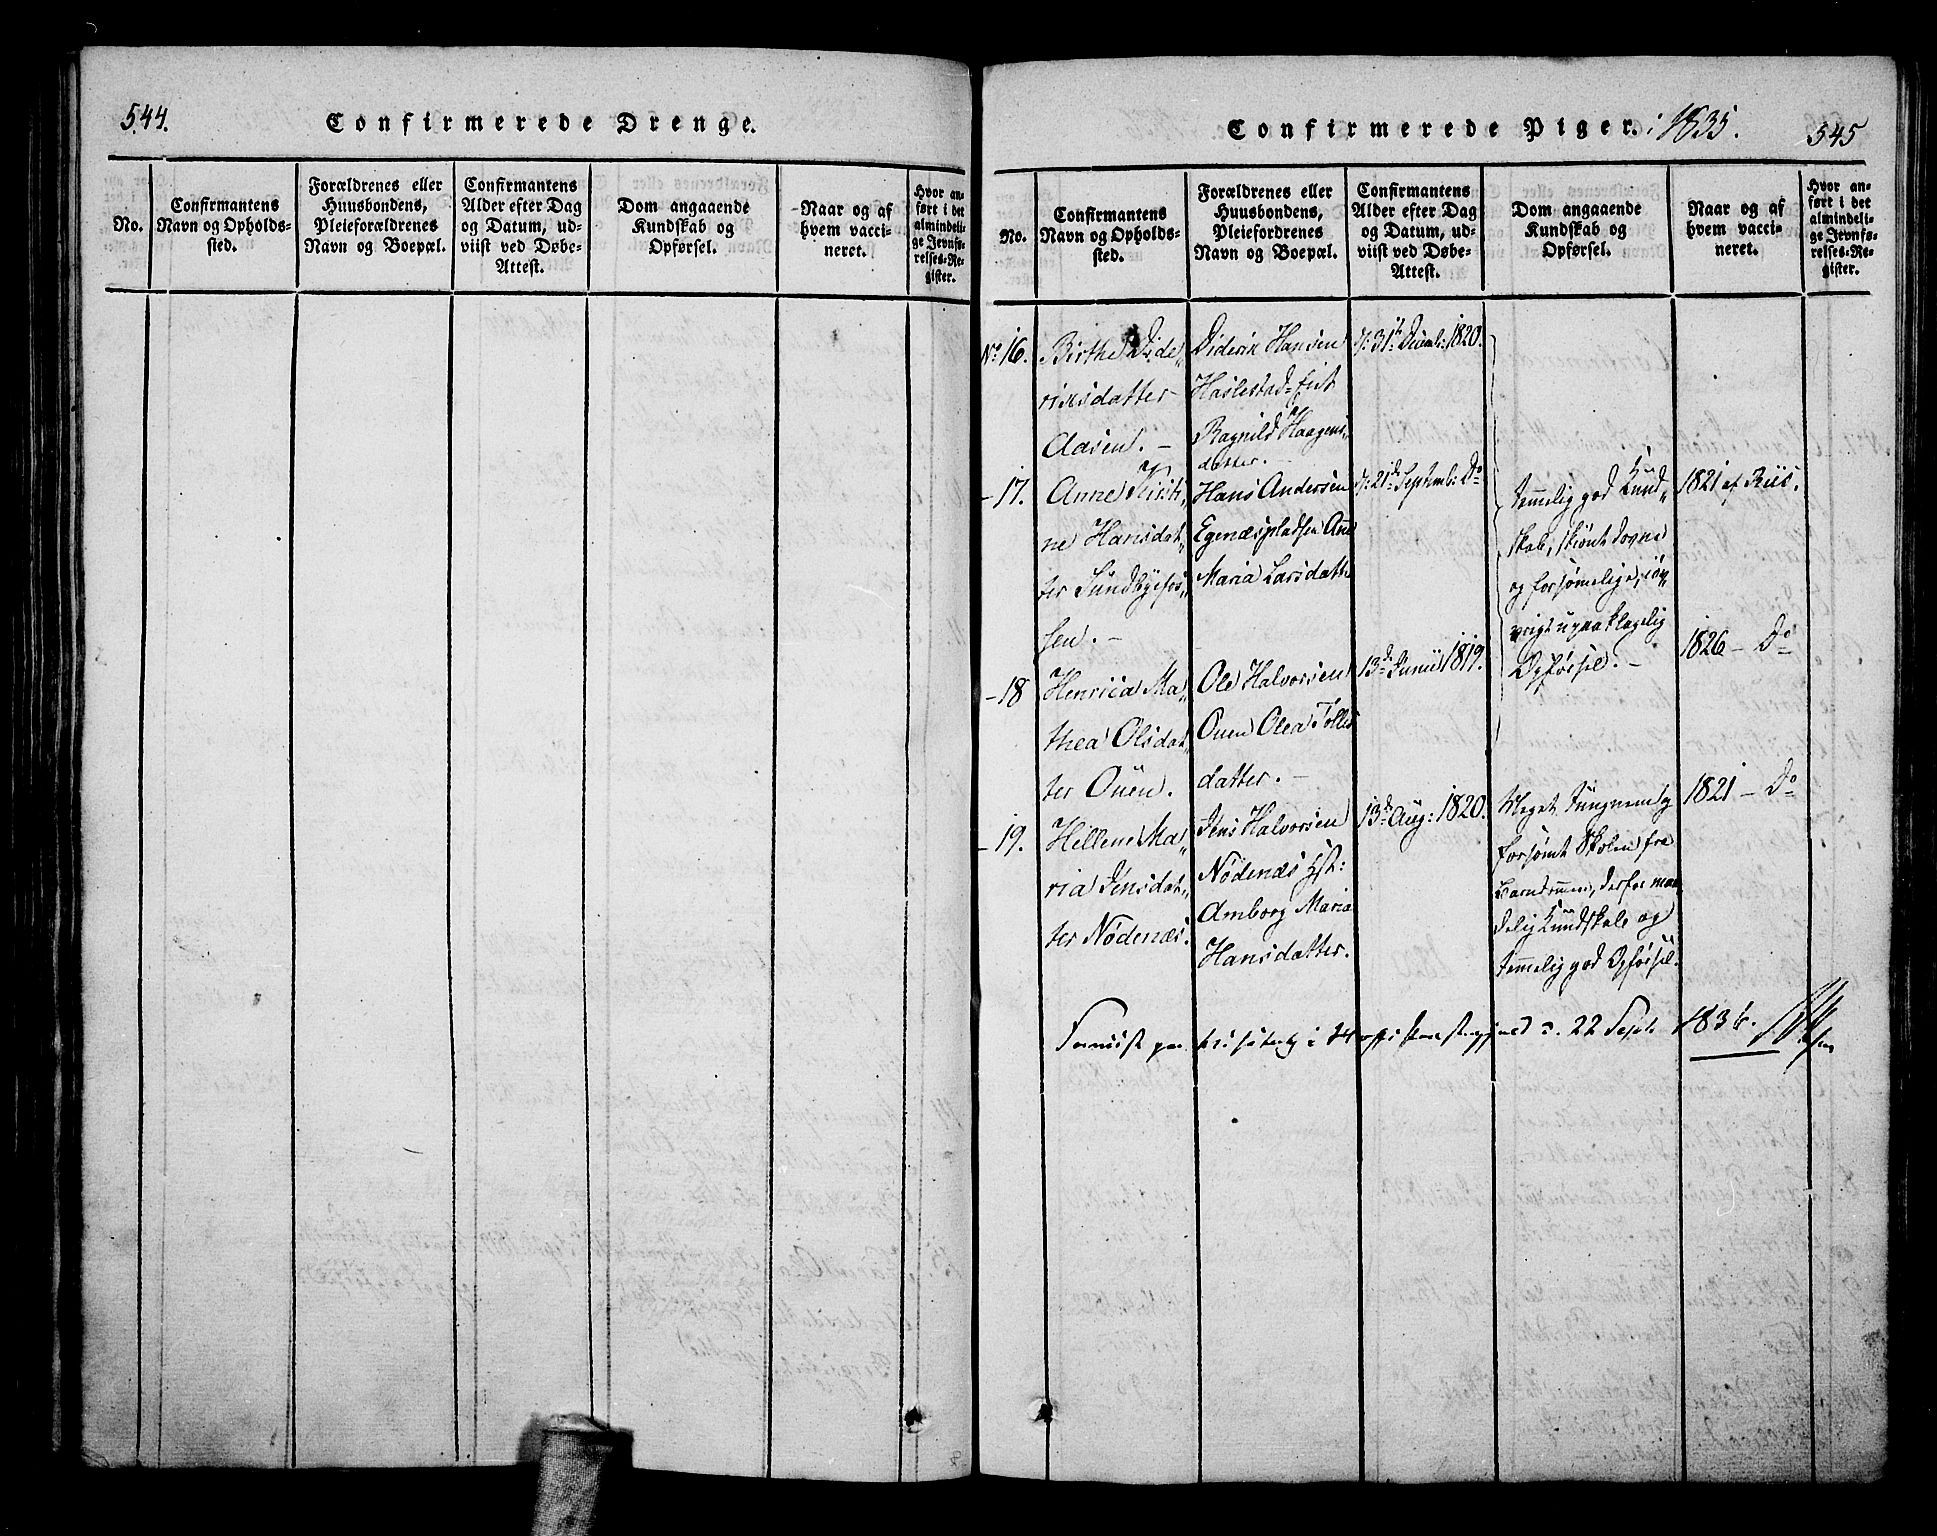 544.
Confirmerede Drenge.
No.
Confirmantens
Navn og Opholds-
sted.
Forældrenes eller
Huusbondens,
Pleieforældrenes
Navn og Boepæl.
Confirmantens
Alder efter Dag
og Datum, ud-
viist ved Døbe-
Attest.
Dom angaaende
Kundskab og
Opførsel.
Naar og af
hvem vacci-
neret.
Hvor an-
ført i det
almindeli-
ge Jevnfø-
relses-Re-
gister.
Confirmerede Piger. i 1835.
545
No.
Confirmantens
Navn og Opholds-
sted.
Forældrenes eller
Huusbondens,
Pleiefordrenes
Navn og Boepæl.
Confirmantens
Alder efter Dag
og Datum, ud-
viist ved Døbe-
Attest.
Dom angaaende
Kundskab og
Opførsel.
Naar og af
hvem vacci-
neret.
Hvor an-
ført i det
almindeli-
ge Jevnfø-
relses-Re-
gister.
No 16.
Birthe Dide„
riksdatter
Aasen. –
Diderik Hansen
Haslestad-eiet
Ragnild Haagens„
datter. –
31te Decemb: 1820.
– 17.
Anne Kirsti„
ne Hansdat„
ter Sundbyefos„
sen. –
Hans Andersen
Egenæspladsen Ane
Maria Larsdatter
21de Septemb: Do
temmelig god Kund„
skab, skiönt dovne
og forsømelige, iøv„
vrigt upaaklagelig
Opførsel. –
1821 af Riis.
– 18
Henrica Ma„
thea Olsdat„
ter Ouen.
Ole Halvorsen
Ouen Olea Tollefs
datter. –
13de Junii 1819.
1826 – Do
– 19.
Hellene Ma„
ria Jensdat„
ter Nödenæs.
Jens Halvorsen
Nödenæs Hst:
Amborg Maria
Hansdatter.
13de Aug: 1820.
Meget tungnem og
forsømt Skolen fra
Barndommen, derfor maa
delig Kundskab og
temmelig god Opførsel.
1821 – Do
Foreviist paa Visitats i Hoff Præstegjæld d. 22 Sept 1836.